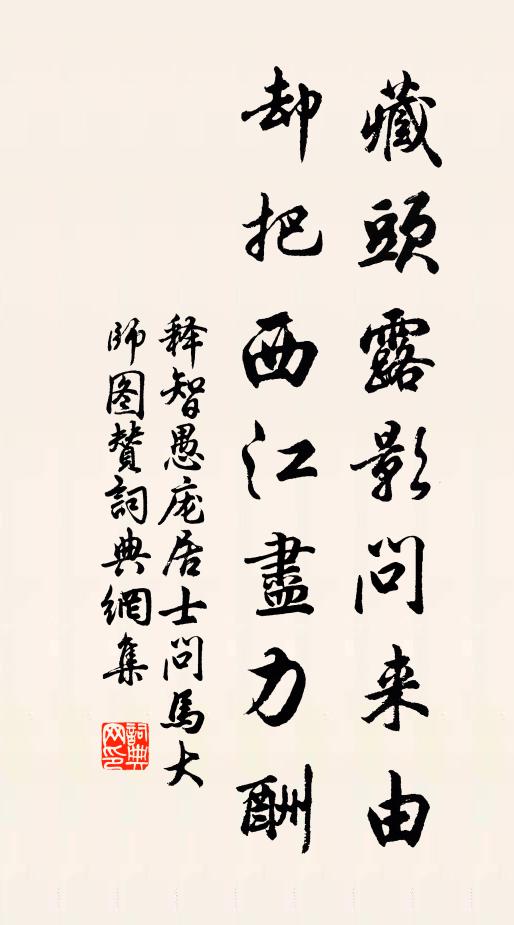 藏頭露影問来由
却把西江盡力酬
释智愚庞居士問馬大
師图贊詞典網集
詞典網印